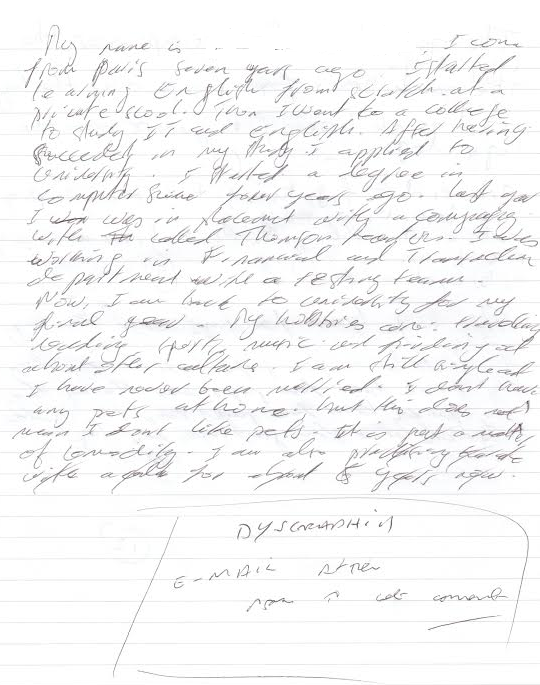 My name is - - - - I come
from paris seven years ago. I started
learning English from scratch at a
private scool. Then I went to a college
to study IT and english. After having
succeeded in my study I applied to
University. I started a degree in
computer years ago. last year
I was in placement with a company
with called Thomson I was
working in Financial and Transaction
department with a testing team.
Now, I am back to university for my
final year. My hobbies are: travelling
reading sport, music and finding out
about other culture. I am still
I have never been married. I dont have
any pets at home. but this does not
mean I dont like pets. It is just a matter
of comodity. I am also practicing karate
with a for about 5 years now.
DYSGRAPHIA
E-MAIL
comment